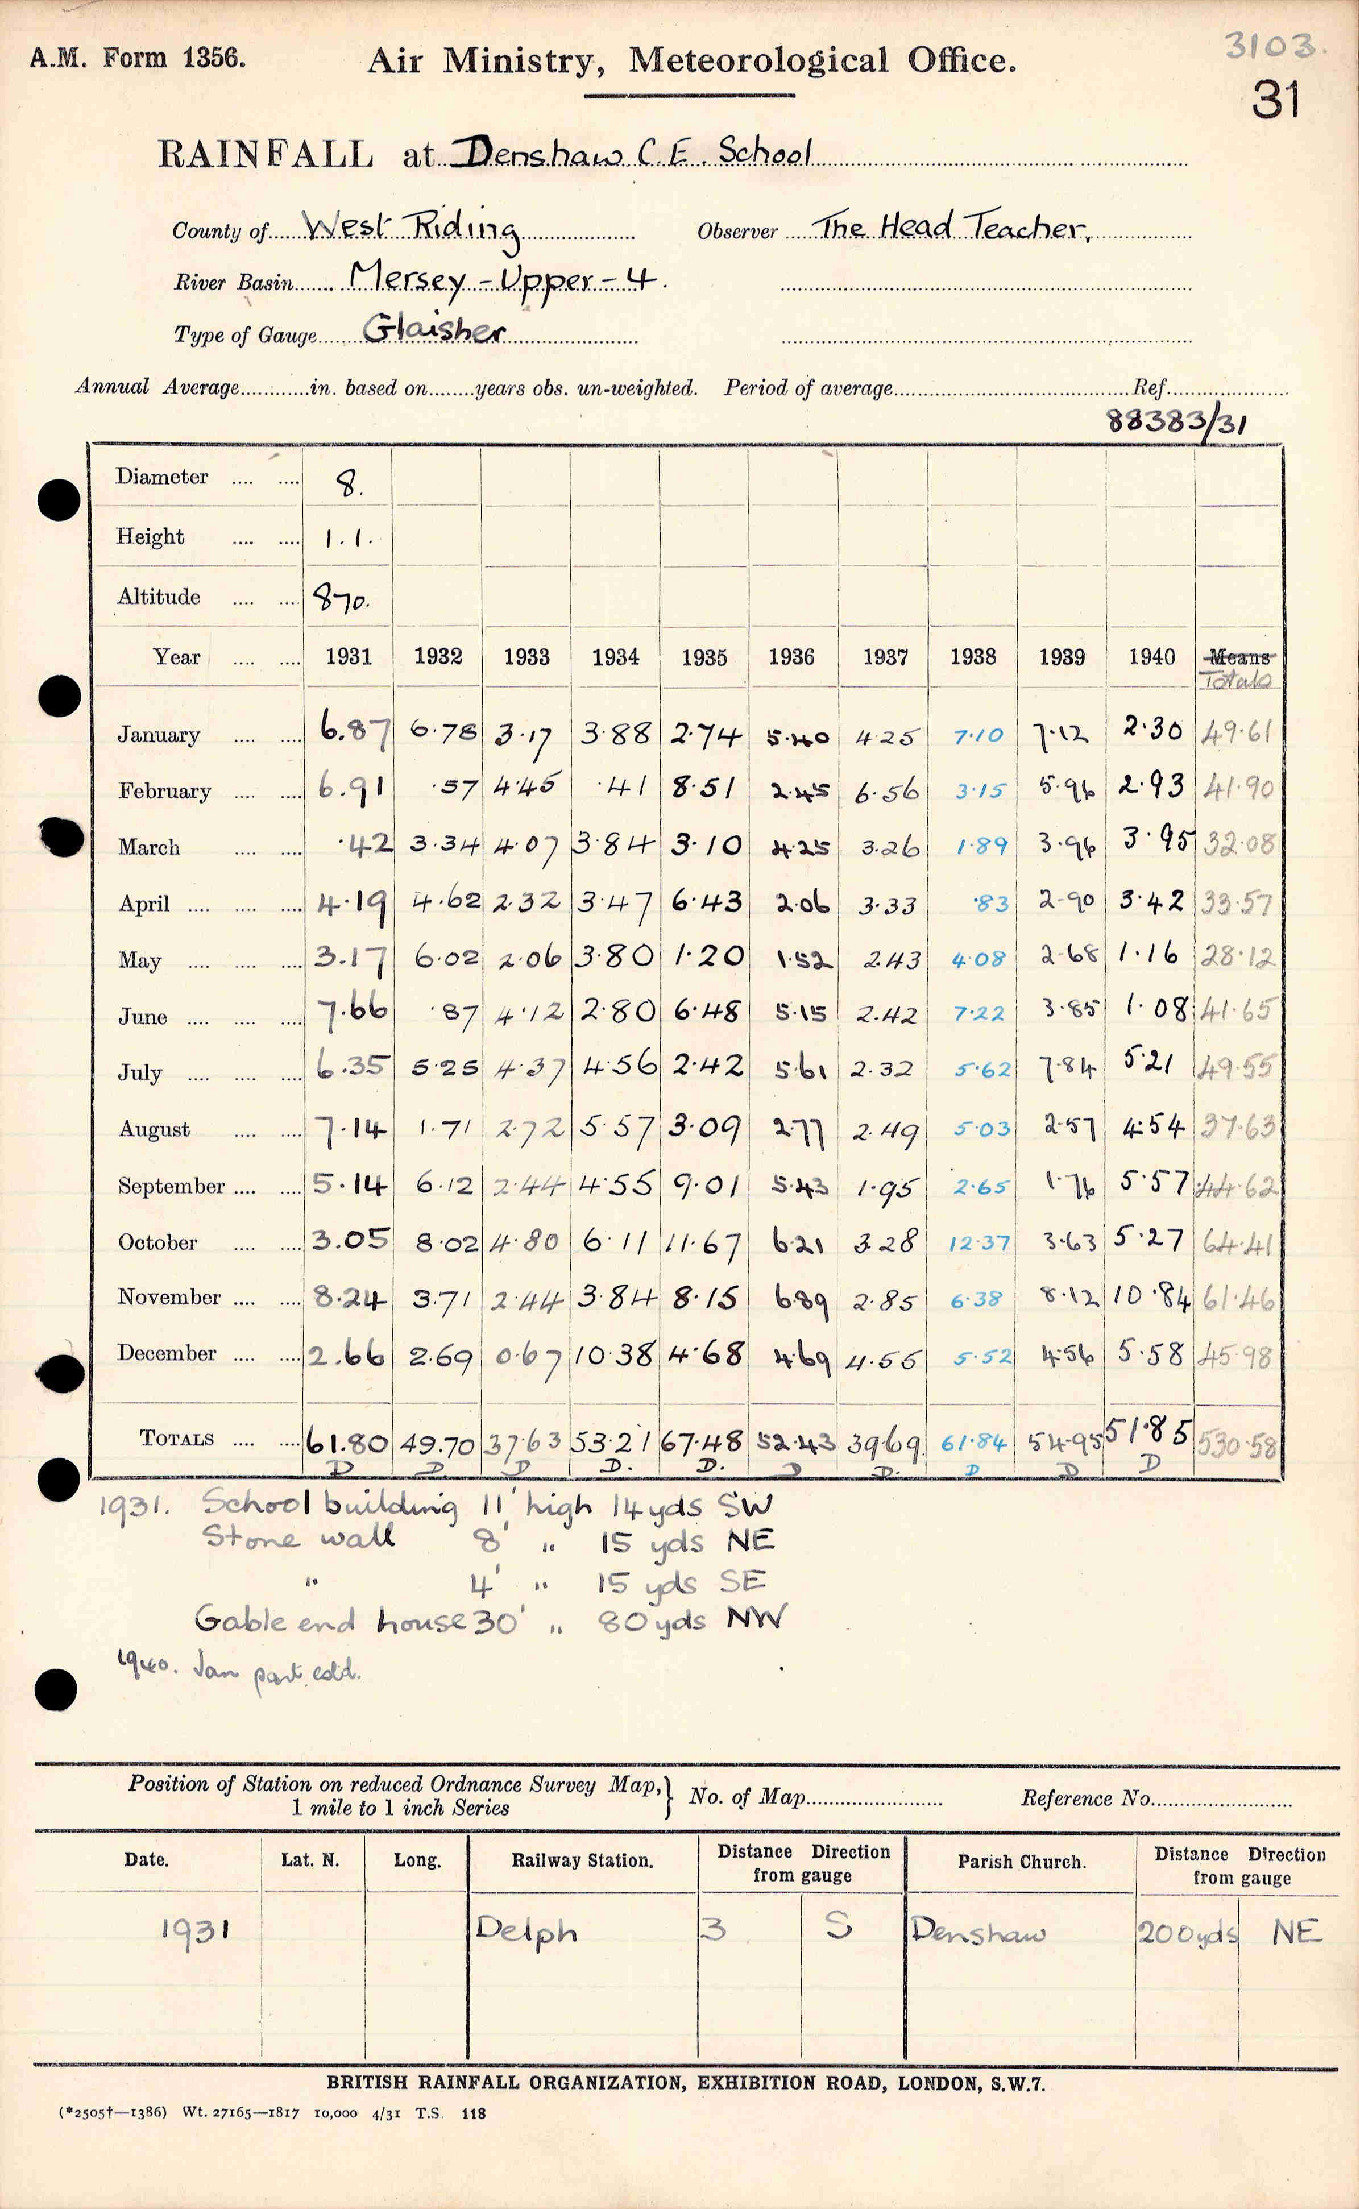 3103.
A.M. Form 1356. Air Ministry, Meteorological Office.
31
RAINFALL at Denshaw C.E. School
County of West Riding Observer The Head Teacher,
River Basin Mersey - Upper - 4.
Type of Gauge Glaisher
Annual Average............in. based on........years obs. un-weighted. Period of average............ Ref............
88383/31
Diameter .... .... 8.
Height .... .... 1.1.
Altitude .... .... 870.
Year .... .... 1931 1932 1933 1934 1935 1936 1937 1938 1939 1940 Means
Totals
January .... .... 6.87 6.78 3.17 3.88 2.74 5.40 4.25 7.10 7.12 2.30 49.61
February .... .... 6.91 .57 4.45 .41 8.51 2.45 6.56 3.15 5.96 2.93 41.90
March .... .... .42 3.34 4.07 3.84 3.10 4.25 3.26 1.89 3.96 3.95 32.08
April .... .... .... 4.19 4.62 2.32 3.47 6.43 2.06 3.33 .83 2.90 3.42 33.57
May .... .... .... 3.17 6.02 2.06 3.80 1.20 1.52 2.43 4.08 2.68 1.16 28.12
June .... .... .... 7.66 .87 4.12 2.80 6.48 5.15 2.42 7.22 3.85 1.08 41.65
July .... .... .... 6.35 5.25 4.37 4.56 2.42 5.61 2.32 5.62 7.84 5.21 49.55
August .... .... 7.14 1.71 2.72 5.57 3.09 2.77 2.49 5.03 2.57 4.54 37.63
September .... .... 5.14 6.12 2.44 4.55 9.01 5.43 1.95 2.65 1.76 5.57 44.62
October .... .... 3.05 8.02 4.80 6.11 11.67 6.21 3.28 12.37 3.63 5.27 64.41
November .... .... 8.24 3.71 2.44 3.84 8.15 6.89 2.85 6.38 8.12 10.84 61.46
December .... .... 2.66 2.69 0.67 10.38 4.68 4.69 4.55 5.52 4.56 5.58 45.98
TOTALS .... .... 61.80 49.70 37.63 53.21 67.48 52.43 39.69 61.84 54.95 51.85 530.58
D D D D. D. D D. D D D
1931. School building 11' high 14 yds SW
Stone wall 8' " 15 yds NE
" 4' " 15 yds SE
Gable end house 30' " 80 yds NW
1940. Jan part estd.
Position of Station on reduced Ordnance Survey Map,} No. of Map............ Reference No............
1 mile to 1 inch Series
Date. Lat. N. Long. Railway Station. Distance Direction from gauge Parish Church. Distance Direction from gauge
1931 Delph 3 S Denshaw 200 yds NE
BRITISH RAINFALL ORGANIZATION, EXHIBITION ROAD, LONDON, S.W.7.
(*2505†—1386) Wt. 27165—1817 10,000 4/31 T.S. 118